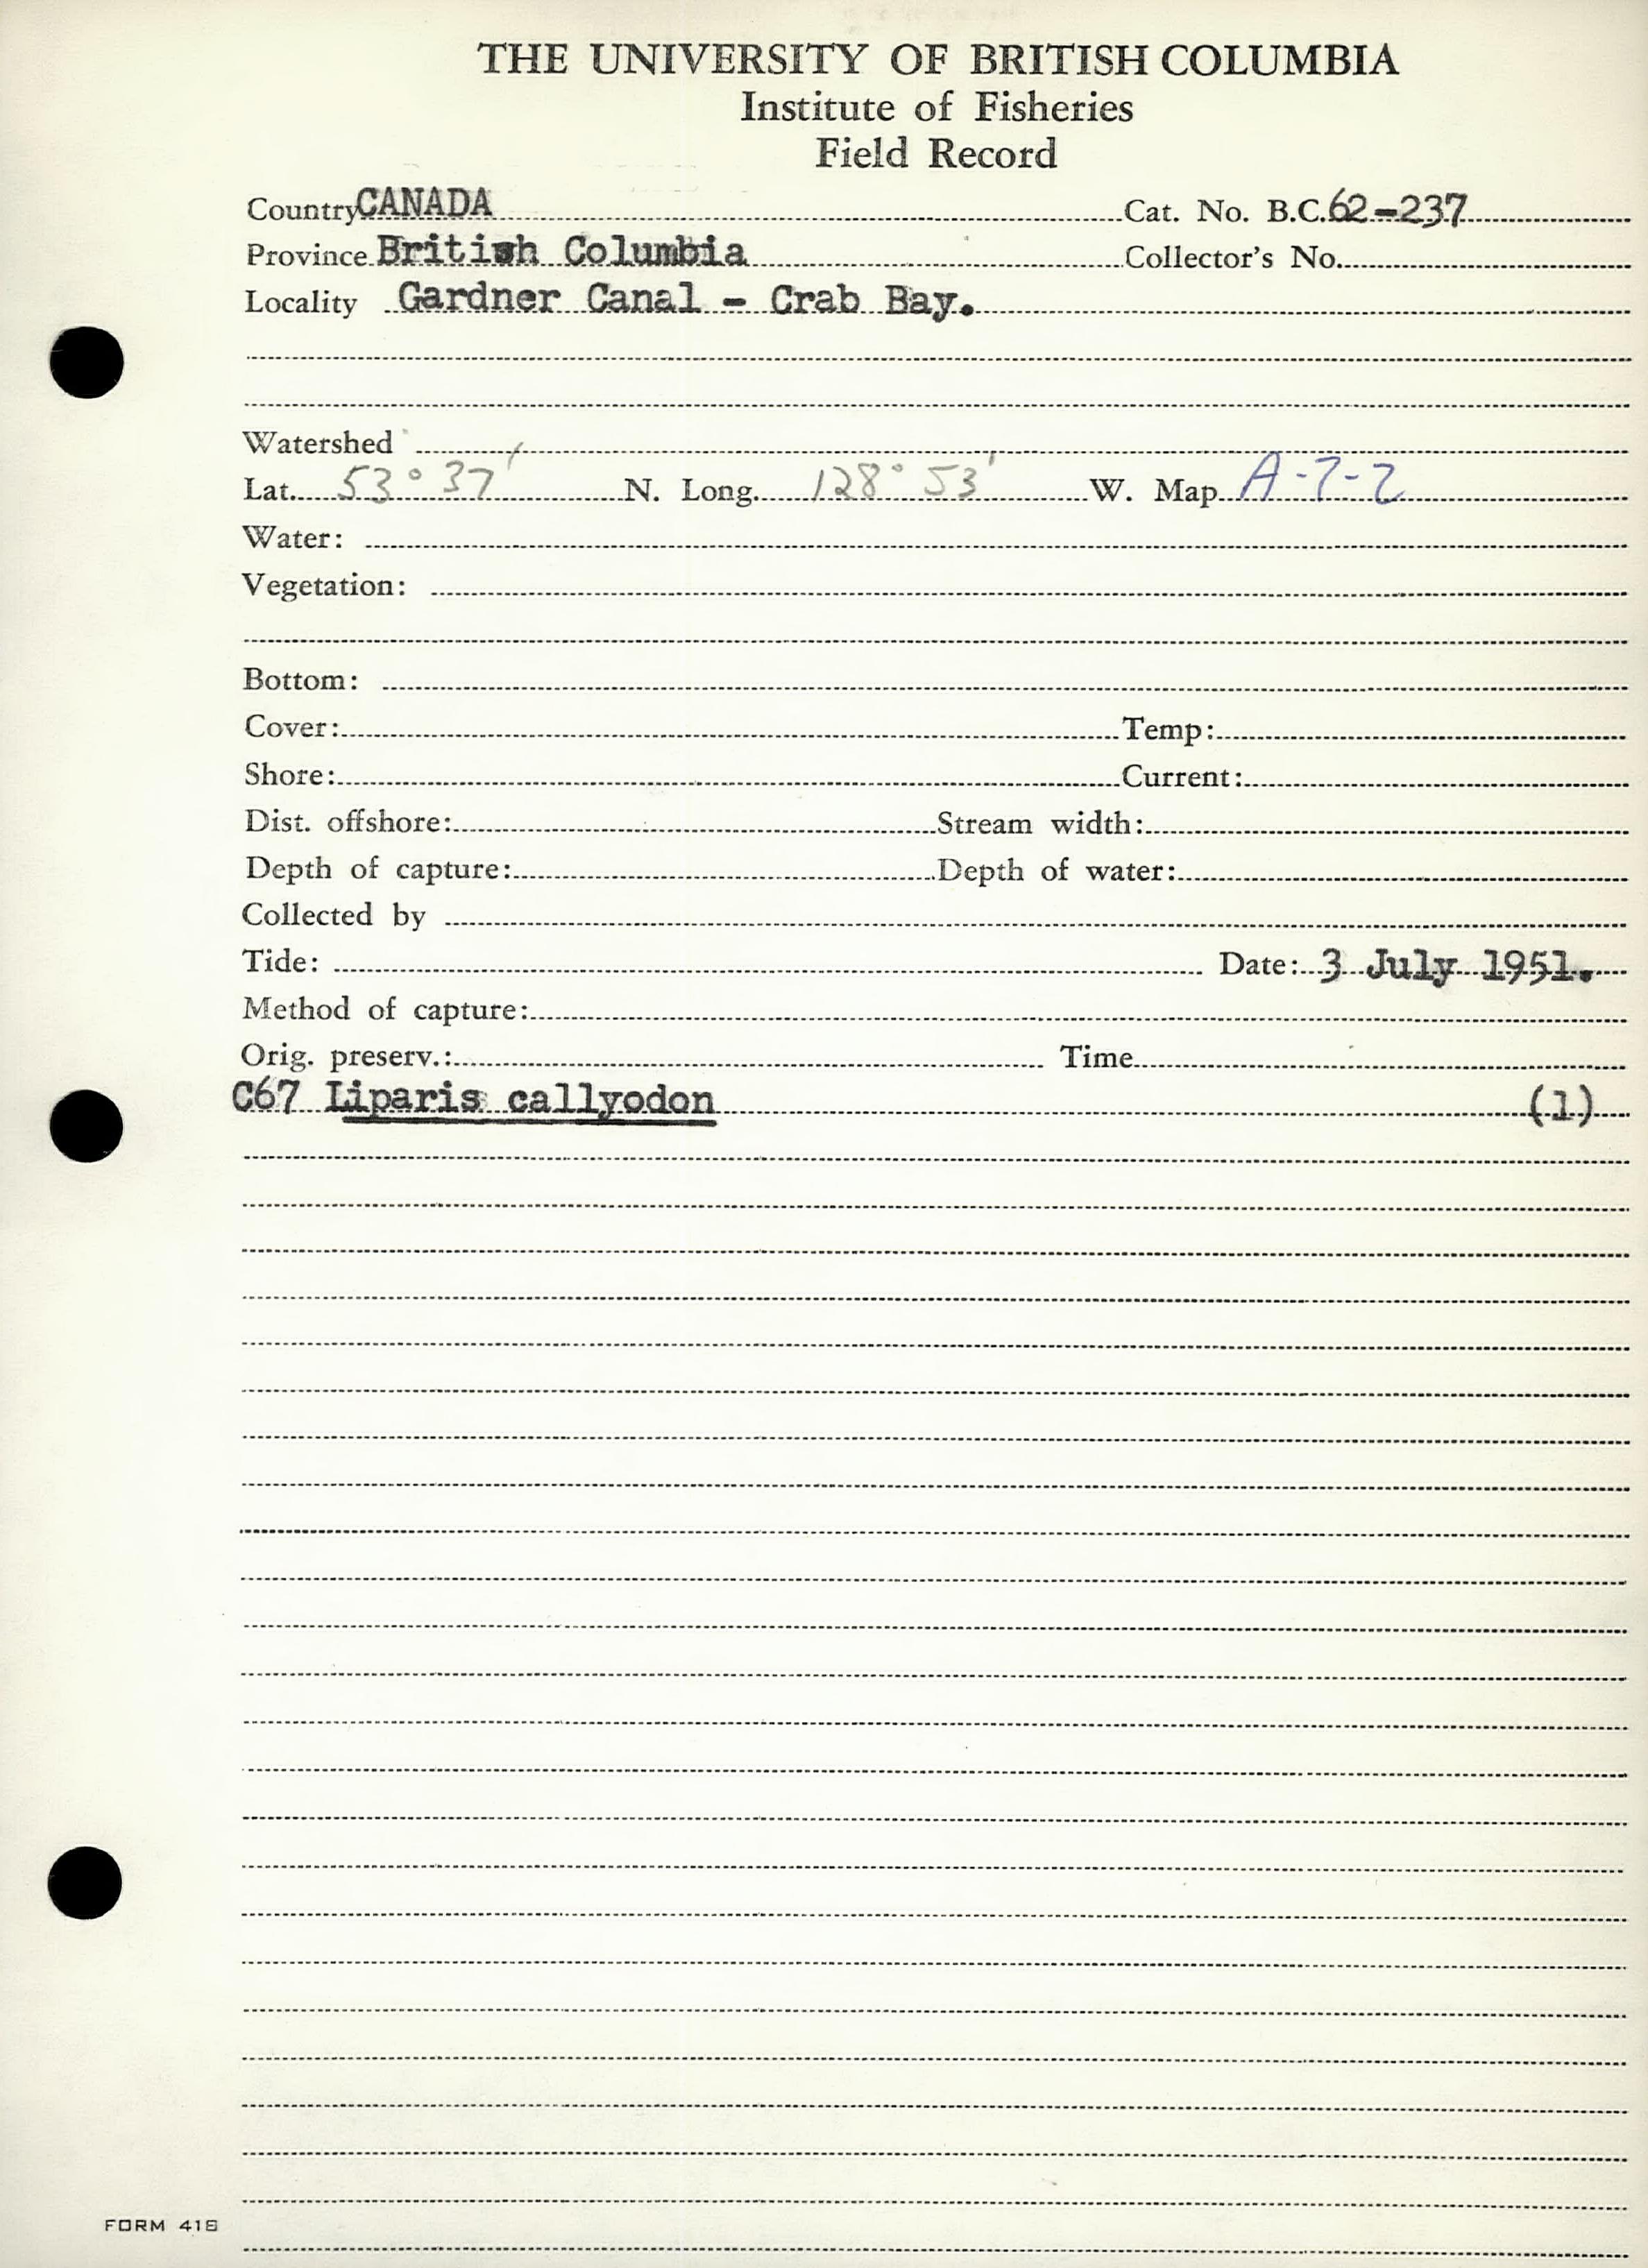 THE UNIVERSITY OF BRITISH COLUMBIA
Institute of Fisheries
Field Record
Country CANADA Cat. No. B.C. 62-237
Province British Columbia Collector's No.
Locality Gardner Canal - Crab Bay.
Watershed
Lat. 53° 37' N. Long. 128° 53' W. Map A-7-2
Water:
Vegetation:
Bottom:
Cover: Temp:
Shore: Current:
Dist. offshore: Stream width:
Depth of capture: Depth of water:
Collected by
Tide: Date: 3 July 1951.
Method of capture:
Orig. preserv.: Time
C67 Liparis callyodon (1)
FORM 418